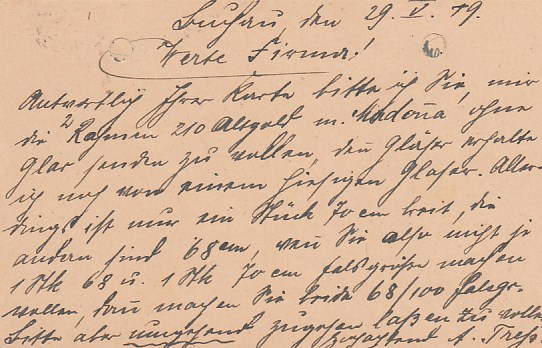 Buchau, den 29. V. 19.
Werte Firma!
Antwortlich Ihrer Karte bitte ich Sie, mir
die 2 Rahmen 210 Altgold m. Madonna ohne
Glas senden zu wollen, den Gläser erhalte
ich noch von einem hiesigen Glaser. Aller-
dings ist nur ein Stück 70 cm breit, die
andern sind 68 cm, wen Sie also nicht je
1 Stk 68 u. 1 Stk 70 cm falsgröße machen
wollen, dan machen Sie beide 68/100 falsgr.
Bitte aber umgehend zugehen laßen zu wollen